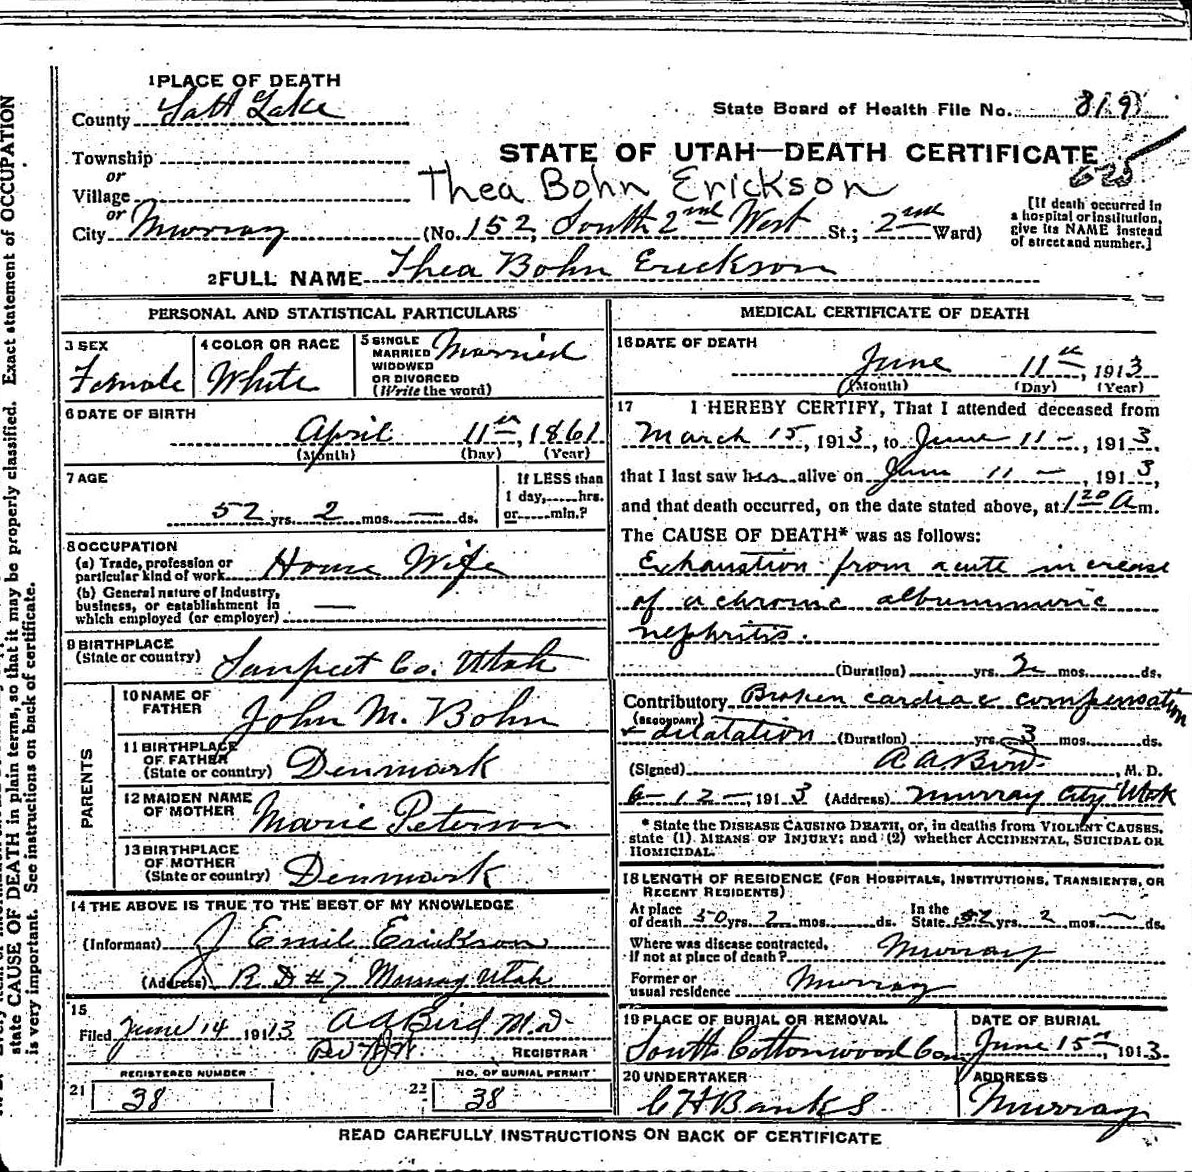 1 PLACE OF DEATH
County Salt Lake
State Board of Health File No. 819
Township
or
Village
or
STATE OF UTAH—DEATH CERTIFICATE
625
Thea Bohn Erickson
City Murray (No. 152, South 2nd West St.; 2nd Ward)
[If death occurred in
a hospital or institution,
give its NAME instead
of street and number.]
2 FULL NAME Thea Bohn Erickson
PERSONAL AND STATISTICAL PARTICULARS
3 SEX
Female
4 COLOR OR RACE
White
5 SINGLE
MARRIED
WIDOWED
OR DIVORCED
(Write the word)
Married
6 DATE OF BIRTH
April 11th, 1861
(Month) (Day) (Year)
7 AGE
52 yrs. 2 mos. — ds.
If LESS than
1 day, hrs.
or min.?
8 OCCUPATION
(a) Trade, profession or
particular kind of work House Wife
(b) General nature of Industry,
business, or establishment in
which employed (or employer) —
9 BIRTHPLACE
(State or country) Sanpeet Co. Utah
PARENTS
10 NAME OF
FATHER John M. Bohn
11 BIRTHPLACE
OF FATHER
(State or country) Denmark
12 MAIDEN NAME
OF MOTHER Marie Peterson
13 BIRTHPLACE
OF MOTHER
(State or country) Denmark
14 THE ABOVE IS TRUE TO THE BEST OF MY KNOWLEDGE
(Informant) J Emil Erickson
(Address) R D #7 Murray Utah
15
Filed June 14 1913 A A Bird M.D.
REGISTRAR
REGISTERED NUMBER
21 38
NO. OF BURIAL PERMIT
22 38
MEDICAL CERTIFICATE OF DEATH
16 DATE OF DEATH
June 11th, 1913
(Month) (Day) (Year)
17 I HEREBY CERTIFY, That I attended deceased from
March 15, 1913, to June 11 —, 1913.
that I last saw her alive on June 11 —, 1913,
and that death occurred, on the date stated above, at 1 20 A m.
The CAUSE OF DEATH* was as follows:
Exhaustion from acute increase
of a chronic albuminuric
nephritis.
(Duration) yrs. 2 mos. ds.
Contributory Broken cardiac compensation
(SECONDARY)
& dilatation (Duration) yrs. 3 mos. ds.
(Signed) A A Bird, M. D.
6-12-, 1913 (Address) Murray City Utah
* State the DISEASE CAUSING DEATH, or, in deaths from VIOLENT CAUSES,
state (1) MEANS OF INJURY; and (2) whether ACCIDENTAL, SUICIDAL OR
HOMICIDAL.
18 LENGTH OF RESIDENCE (FOR HOSPITALS, INSTITUTIONS, TRANSIENTS, OR
RECENT RESIDENTS)
At place
of death 50 yrs. 2 mos. ds.
In the
State 52 yrs. 2 mos. — ds.
Where was disease contracted,
if not at place of death? Murray
Former or
usual residence Murray
19 PLACE OF BURIAL OR REMOVAL
South Cottonwood Cem
DATE OF BURIAL
June 15th, 1913.
20 UNDERTAKER
C H Banks
ADDRESS
Murray
READ CAREFULLY INSTRUCTIONS ON BACK OF CERTIFICATE
state CAUSE OF DEATH in plain terms, so that it may be properly classified. Exact statement of OCCUPATION
is very important. See instructions on back of certificate.